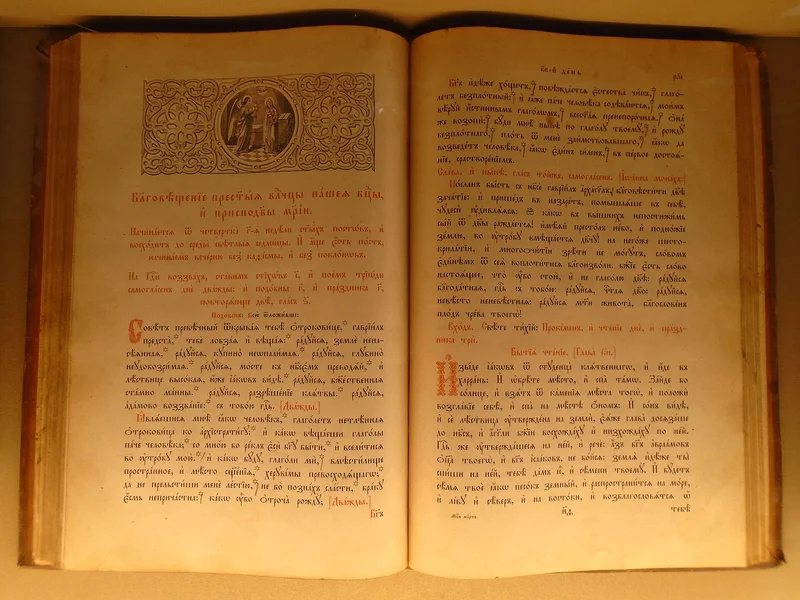 Бл҃говѣ́щенїе прест҃ы́ѧ влⷣчцы на́шеѧ бц҃ы,
и҆ присноду҃ы мр҃і́и.
Начина́етсѧ ѿ четверта̀ г҃-ѧ недѣ́ли ст҃ы́хъ постѡ́въ, и҆
восхо́дитъ до среды̀ свѣ́тлыѧ седми́цы. И҆ а҆́ще є҆́сть по́стъ,
начина́емъ вече́рню без̾ каѳі́смы, и҆ без̾ покло́нѡвъ.
На Гдⷭ҇и воззва́хъ, ста́вимъ стїхѡ́въ і҆, и҆ пое́мъ трїѡ́ди
самогла́сенъ днѐ два́жды: и҆ подѡ́бны г҃, и҆ пра́здника г҃,
повторѧ́юще двѣ̀, гла́съ ѕ҃.
Подо́бенъ: Всѐ ѿложи́вше:
Совѣ́тъ превѣ́чный ѿкрыва́ѧ тебѣ̀ ѻ҆трокови́це,* гаврїи́лъ
предста̀,* тебѐ лобза́ѧ и҆ вѣща́ѧ:* ра́дꙋйсѧ, землѐ нена-
сѣ́ѧннаѧ,* ра́дꙋйсѧ, кꙋпино̀ неѡпали́маѧ.* ра́дꙋйсѧ, глꙋбино̀
неꙋдобозри́маѧ.* ра́дꙋйсѧ, мо́сте къ нб҃сє́мъ преводѧ́й,* и҆
лѣ́ствице высо́каѧ, ю҆́же і҆а́кѡвъ ви́дѣ.* ра́дꙋйсѧ, бж҃е́ственнаѧ
ста́мно ма́нны.* ра́дꙋйсѧ, разрѣше́нїе клѧ́твы.* ра́дꙋйсѧ,
а҆да́мово воззва́нїе:* съ тобо́ю гдⷭ҇ь. [Два́жды.]
Ꙗ҆влѧ́ешисѧ мнѣ̀ ꙗ҆́кѡ человѣ́къ,* глаго́летъ нетлѣ́ннаѧ
ѻ҆трокови́ца ко а҆рхїстрати́гꙋ:* и҆ ка́кѡ вѣща́еши глаго́лы
па́че человѣ́ка;* со мно́ю бо ре́клъ є҆сѝ бг҃ꙋ бы́ти,* и҆ всели́тисѧ
во ᲂу҆тро́бꙋ мою̀.* и҆ ка́кѡ бꙋ́дꙋ, глаго́ли мѝ,* вмѣсти́лище
простра́нное, и҆ мѣ́сто сщ҃е́нїѧ,* херꙋві́мы превосходѧ́щагѡ;*
да не прельсти́ши менѐ ле́стїю,* не бо̀ позна́хъ сла́сти,* бра́кꙋ
є҆́смь неприча́стна:* ка́кѡ ᲂу҆̀бо ѻ҆троча̀ рождꙋ̀; [Два́жды.]
Бг҃ъ
к҃є-й де́нь
Бг҃ъ и҆дѣ́же хо́щетъ,* побѣжда́етсѧ є҆стества̀ чи́нъ,* глаго́-
летъ безпло́тный:* и҆ ꙗ҆̀же па́че человѣ́ка содѣва́ютсѧ,* мои̑мъ
вѣ́рꙋй и҆́стиннымъ глаго́лѡмъ,* всест҃а́ѧ пренепоро́чнаѧ.* Ѻ҆на́
же возопѝ:* бꙋ́ди мнѣ̀ ны́нѣ по глаго́лꙋ твоемꙋ̀,* и҆ рождꙋ̀
безпло́тнаго,* пло́ть ѿ менѐ заи́мствовавшаго,* ꙗ҆́кѡ да
возведе́тъ человѣ́ка, ꙗ҆́кѡ є҆ди́нъ си́ленъ,* въ пе́рвое достоѧ́-
нїе, срастворе́нїемъ.
Сла́ва, и҆ ны́нѣ, гла́съ то́йже, самогла́сенъ. [І҆ѡа́нна мона́ха:]
По́сланъ бы́сть съ нб҃сѐ гаврїи́лъ а҆рха́гг҃лъ, благовѣсти́ти дв҃ѣ
зача́тїе: и҆ прише́дъ въ назаре́тъ, помышлѧ́ше въ себѣ̀,
чꙋдесѝ ᲂу҆дивлѧ́ѧсѧ: ѽ ка́кѡ въ вы́шнихъ непостижи́-
мый ѿ дв҃ы ражда́етсѧ! и҆мѣ́ѧй прⷭ҇то́лъ не́бо, и҆ подно́жїе
зе́млю, во ᲂу҆тро́бꙋ вмѣща́етсѧ дв҃чꙋ! на него́же шесто-
крила́тїи, и҆ многоочи́тїи зрѣ́ти не мо́гꙋтъ, сло́вомъ
є҆ди́нѣмъ ѿ сеѧ̀ воплоти́тисѧ благоизво́ли. бж҃їе є҆́сть сло́во
настоѧ́щее, что̀ ᲂу҆̀бо стою̀, и҆ не глаго́лю дв҃ѣ: ра́дꙋйсѧ
благода́тнаѧ, гдⷭ҇ь съ тобо́ю: ра́дꙋйсѧ, чⷭ҇таѧ дв҃о: ра́дꙋйсѧ,
невѣ́сто неневѣ́стнаѧ: ра́дꙋйсѧ мт҃и живота̀, благослове́нъ
пло́дъ чре́ва твоегѡ̀!
Вхо́дъ. Свѣ́те ти́хїй: Проки́менъ, и҆ чтє́нїѧ днѐ, и҆ пра́зд-
ника трѝ.
Бытїѧ̀ чте́нїе. [Глава̀ к҃и.]
И҆зы́де і҆а́кѡвъ ѿ стꙋденца̀ клѧ́твеннагѡ, и҆ и҆́де въ
харра́нь: и҆ ѡ҆брѣ́те мѣ́сто, и҆ спа̀ та́мѡ. За́йде бо
со́лнце, и҆ взѧ́тъ ѿ ка́менїѧ мѣ́ста тогѡ̀, и҆ положѝ
возгла́вїе себѣ̀, и҆ спа̀ на мѣ́стѣ ѻ҆́номъ: И҆ со́нъ ви́дѣ,
и҆ сѐ лѣ́ствица ᲂу҆твержде́на на землѝ, є҆ѧ́же глава̀ досѧза́ше
до нб҃сѐ, и҆ а҆́гг҃ли бж҃їи восхожда́хꙋ и҆ низхожда́хꙋ по не́й.
Гдⷭ҇ь же ᲂу҆твержда́шесѧ на не́й, и҆ речѐ: а҆́зъ бг҃ъ а҆враа́мовъ
ѻ҆ц҃а̀ твоегѡ̀, и҆ бг҃ъ і҆саа́ковъ, не бо́йсѧ: землѧ̀ и҆дѣ́же ты̀
спи́ши на не́й, тебѣ̀ да́мъ ю҆̀, и҆ сѣ́мени твоемꙋ̀. И҆ бꙋ́детъ
сѣ́мѧ твоѐ ꙗ҆́кѡ песо́къ земны́й, и҆ распространи́тсѧ на мо́ре,
и҆ лі́вꙋ и҆ сѣ́веръ, и҆ на восто́ки, и҆ возблагословѧ́тсѧ ѡ҆
тебѣ̀